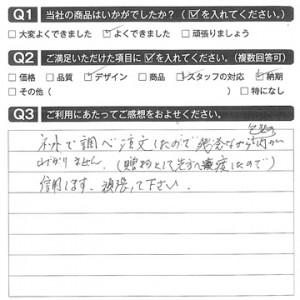 Q1 当社の商品はいかがでしたか？（☑を入れてください。）
□大変よくできました ☑よくできました □頑張りましょう
Q2 ご満足いただけた項目に☑を入れてください。（複数回答可）
□価格 □品質 ☑デザイン □商品 ☑スタッフの対応 ☑納期
□その他（ ）□特になし
Q3 ご利用にあたってご感想をおよせください。
ネットで調べ注文したので残念ながら
上がりません。（贈物として先方へ直接したので）
信用します。頑張って下さい。